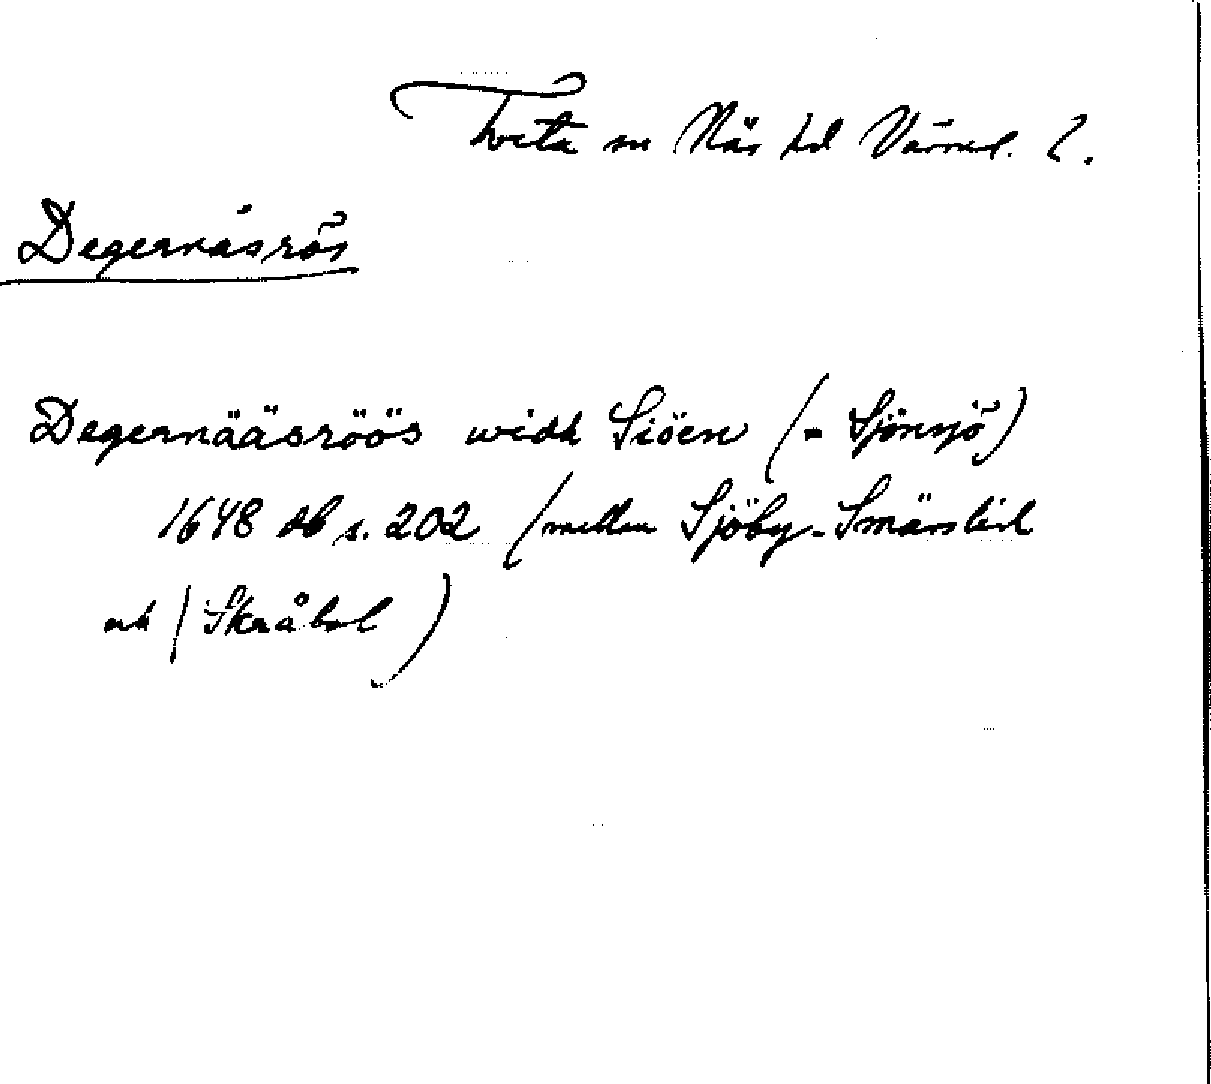 Tveta sn Näs hd Värml. l.
Degernäsrös
Degernääsröös widh Siöen (= Sjönsjö)
1648 db s. 202 (mellan Sjöby-Smärslid
och (Skråbol)